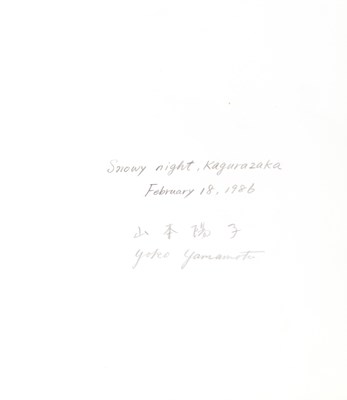 Snowy night, Kagurazaka
February 18, 1986
山本陽子
Yoko Yamamoto